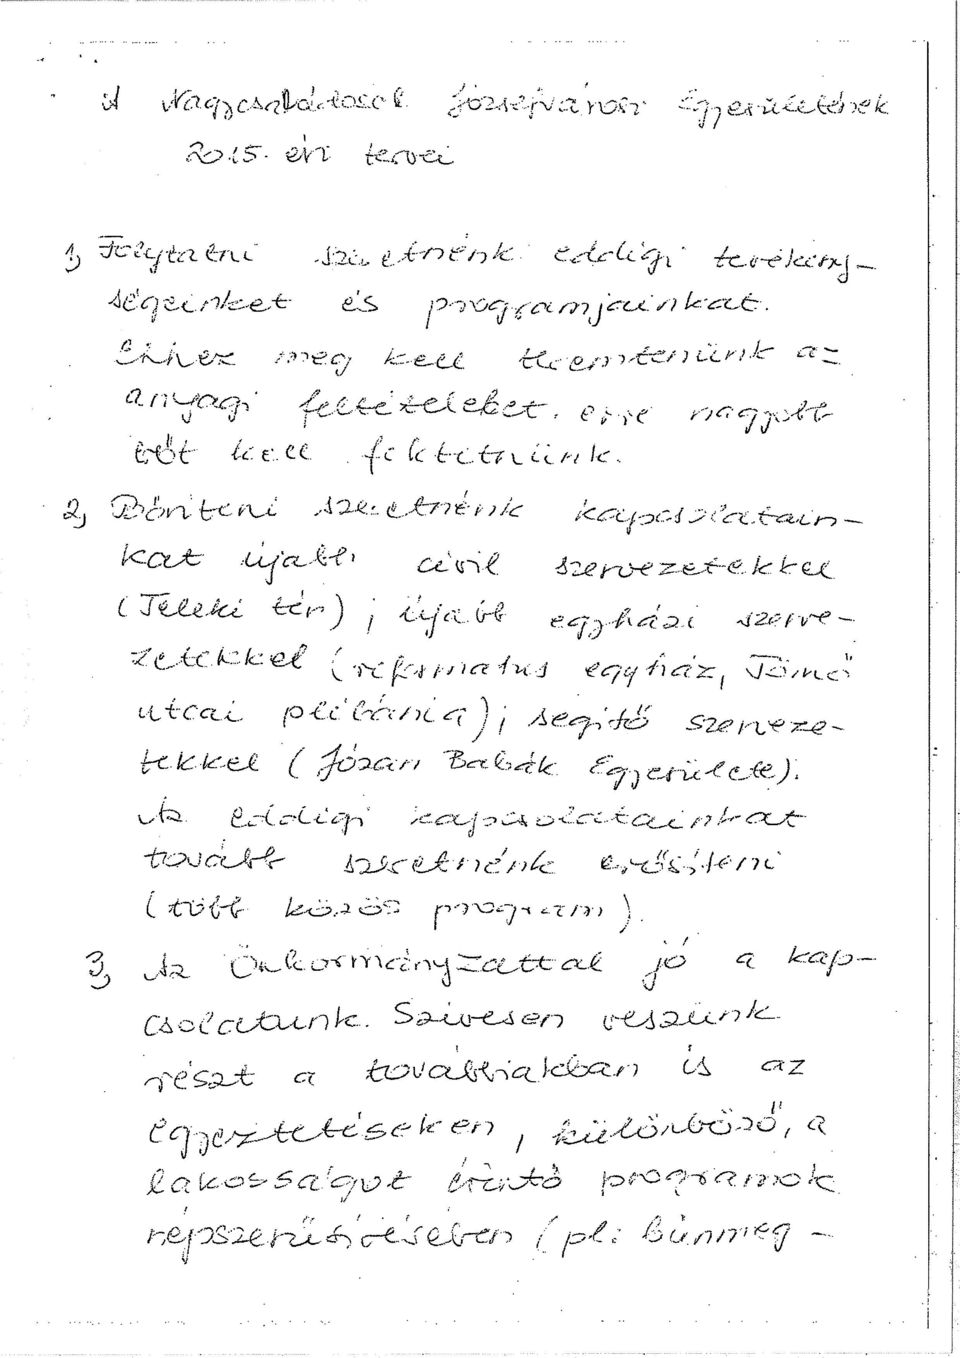 A Nagycsaládosok Józsefvárosi Egyesületének
2015. évi tervei
1, Folytatni szeretnénk eddigi tevékeny-
ségeinket és programjainkat.
Ehhez meg kell teremtenünk az
anyagi feltételeket, erre nagyobb
erőt kell fektetnünk.
2, Bővíteni szeretnénk kapcsolatain-
kat újabb civil szervezetekkel
(Teleki tér); újabb egyházi szerve-
zetekkel (református egyház, Tömő
utcai plébánia); segítő szerveze-
tekkel (Józan Babák Egyesülete).
Az eddigi kapcsolatainkat
tovább szeretnénk erősíteni
(több közös program).
3, Az Önkormányzattal jó a kap-
csolatunk. Szívesen veszünk
részt a továbbiakban is az
egyeztetéseken, különböző, a
lakosságot érintő programok
népszerűsítésében (pl: bűnmeg-